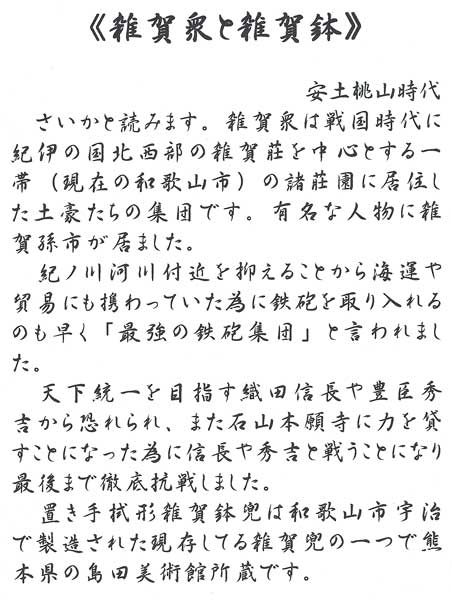 《雑賀衆と雑賀鉢》
安土桃山時代
さいかと読みます。雑賀衆は戦国時代に
紀伊の国北西部の雑賀荘を中心とする一
帯（現在の和歌山市）の諸荘園に居住し
た土豪たちの集団です。有名な人物に雑
賀孫市が居ました。
紀ノ川河川付近を抑えることから海運や
貿易にも携わっていた為に鉄砲を取り入れる
のも早く「最強の鉄砲集団」と言われまし
た。
天下統一を目指す織田信長や豊臣秀
吉から恐れられ、また石山本願寺に力を貸
すことになった為に信長や秀吉と戦うことになり
最後まで徹底抗戦しました。
置き手拭形雑賀鉢兜は和歌山市宇治
で製造された現存してる雑賀兜の一つで熊
本県の島田美術館所蔵です。